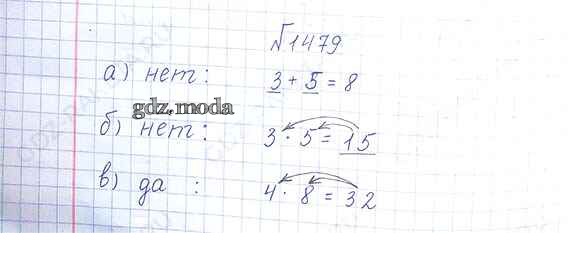 №1479
а) нет: 3 + 5 = 8
gdz.moda
б) нет: 3 · 5 = 15
в) да : 4 · 8 = 32